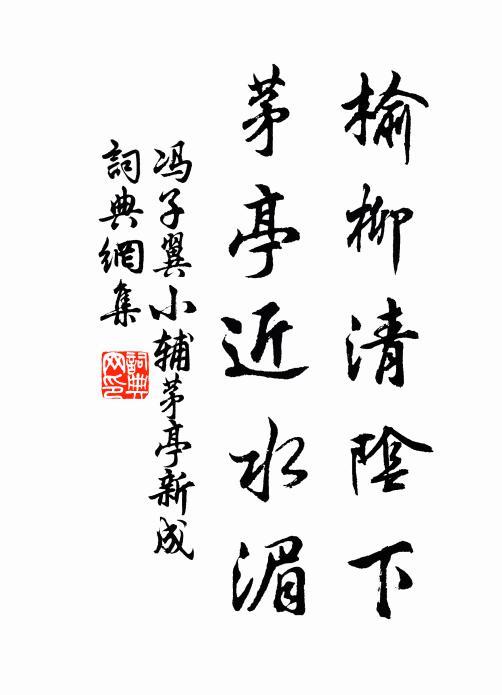 榆柳清陰下
茅亭近水湄
冯子翼小辅茅亭新成
詞典網集
詞典网印